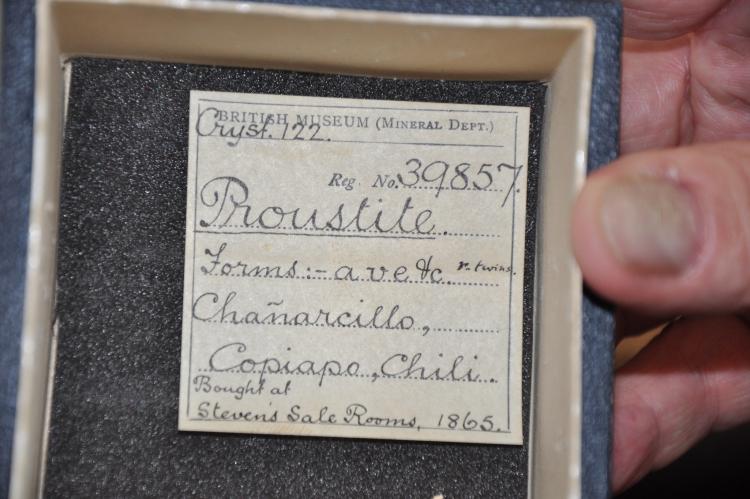 BRITISH MUSEUM (MINERAL DEPT.)
Cryst. 122.
Reg. No. 39857.
Proustite.
Forms:- a v e &c. r. twins.
Chañarcillo,
Copiapo, Chili.
Bought at
Steven's Sale Rooms, 1865.